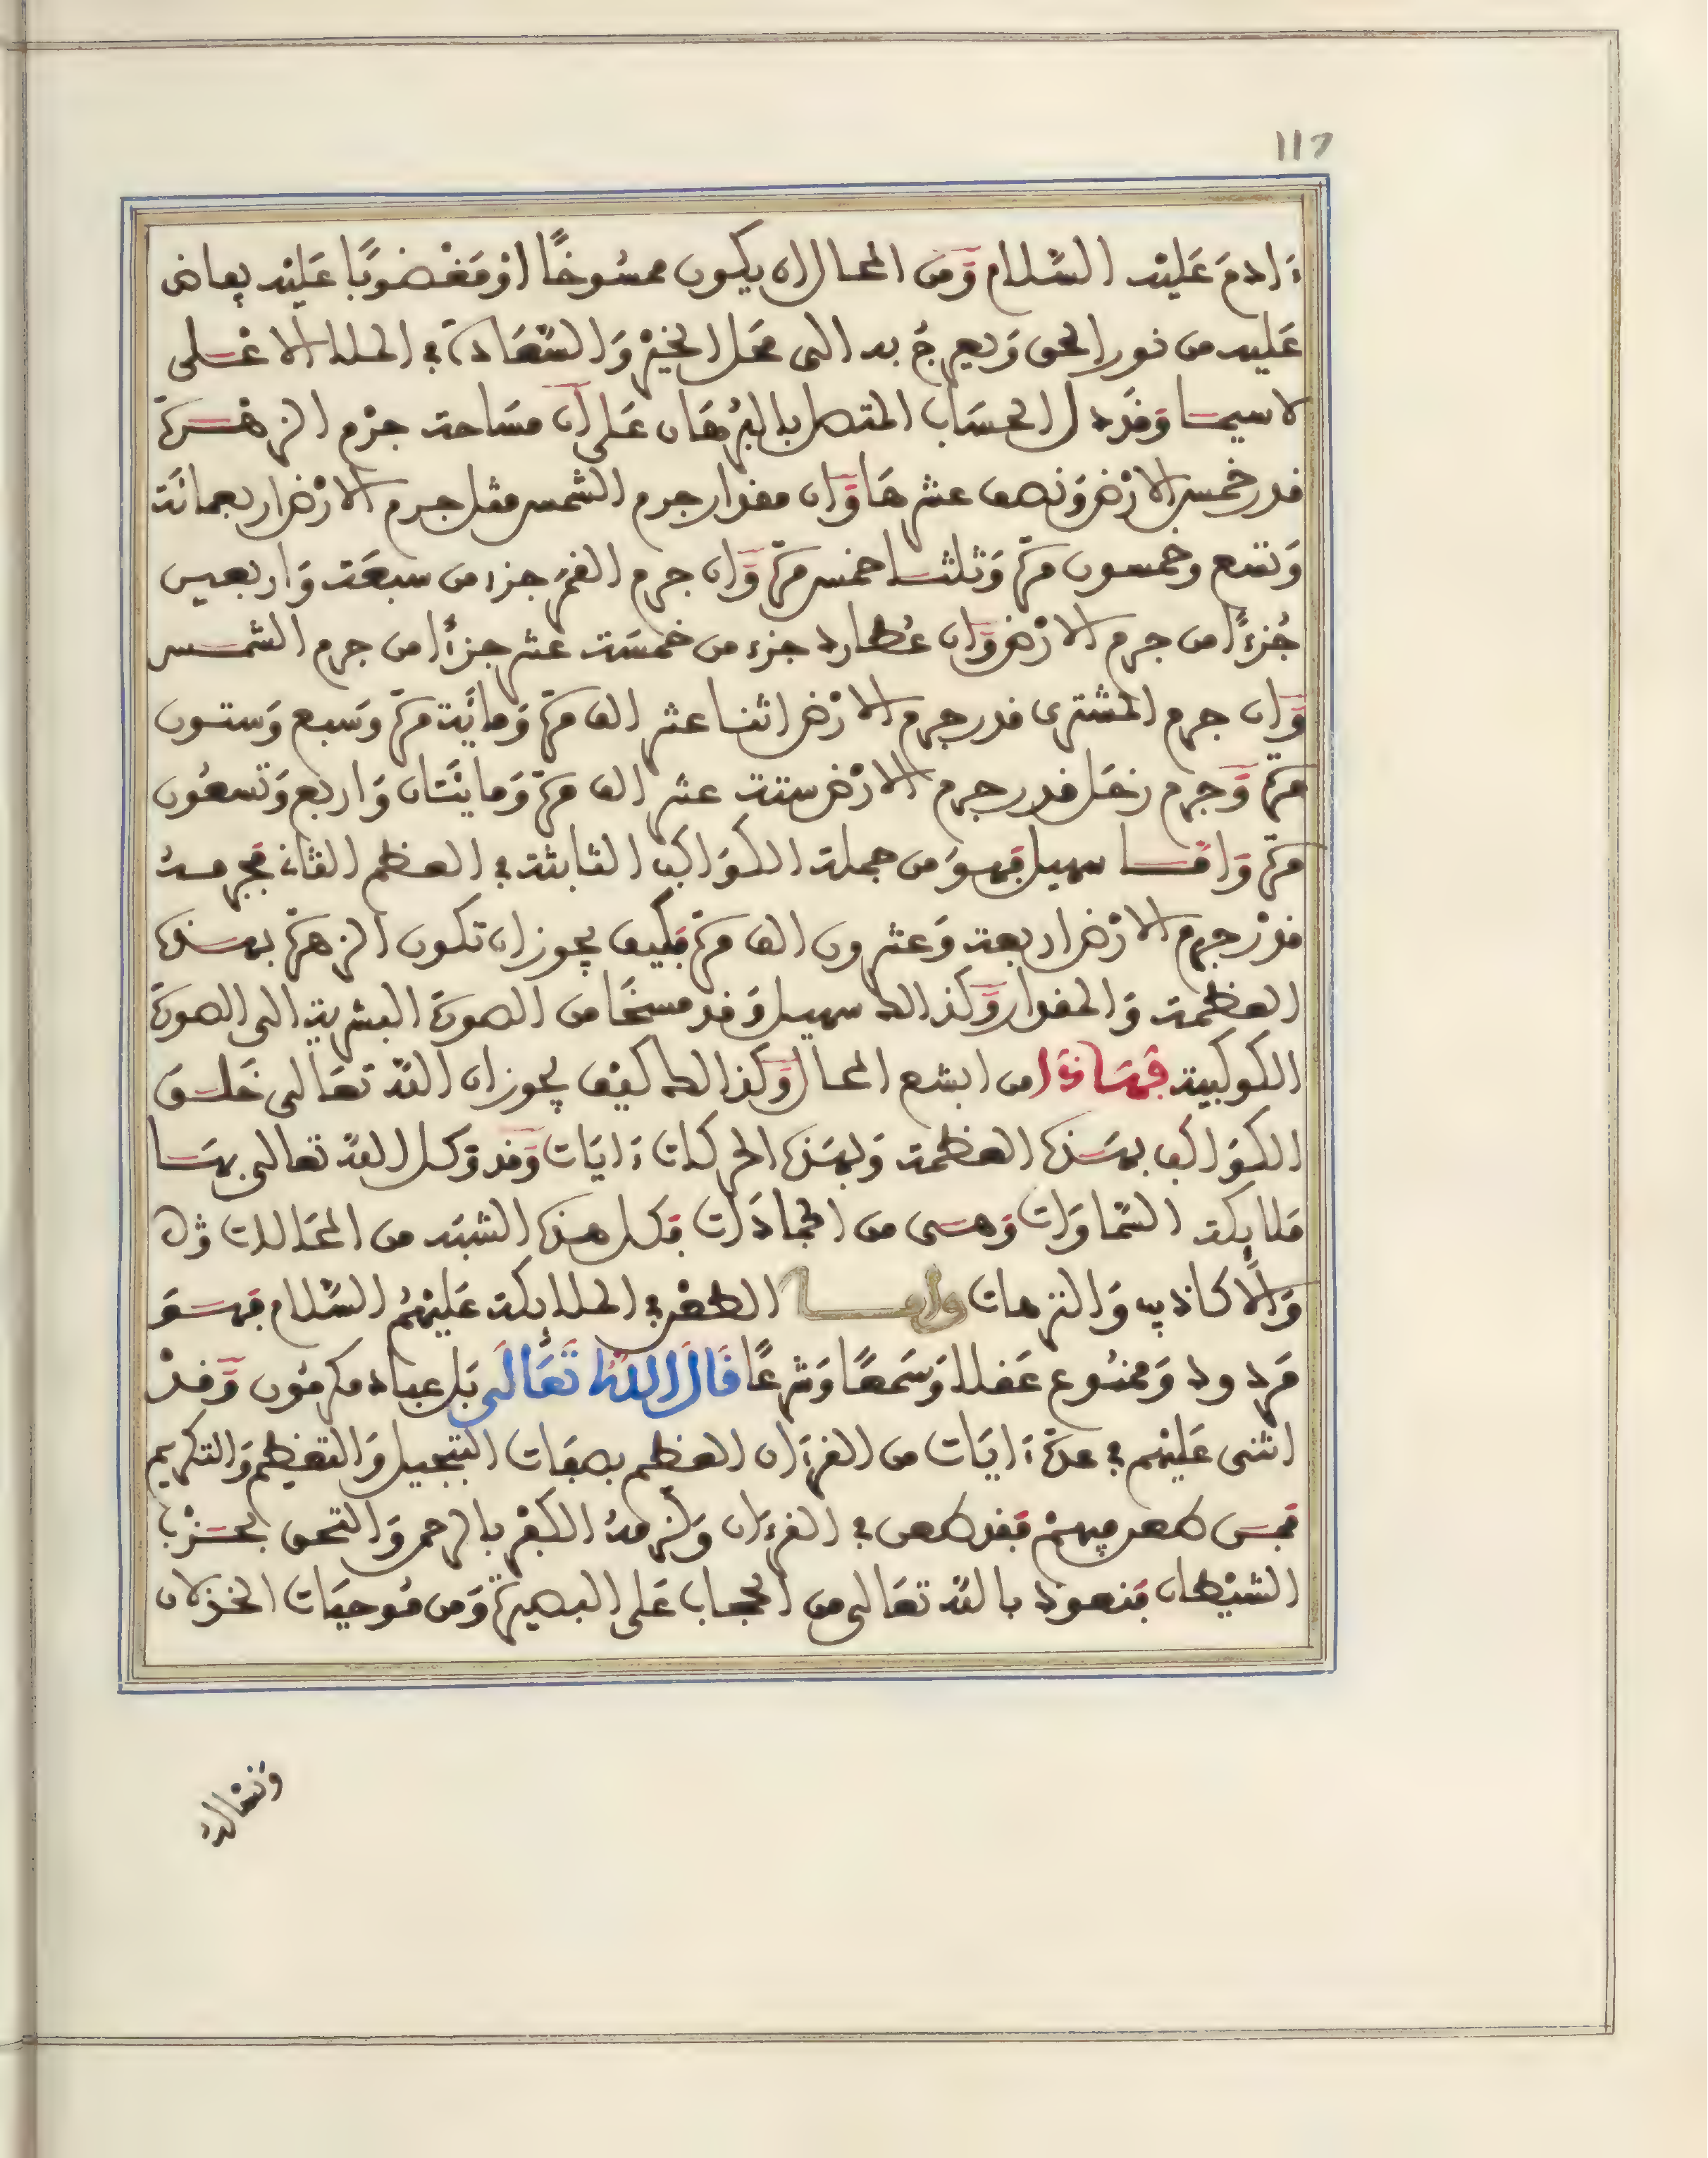 117
ءادم عَليْه السَّلام وَّمن المحال ان يكون ممسُوخًا اوْ مَغْضوبًا عَليْه بفاض
عَليه من نور الحق وَيعرجُ به الى محَل الخيْرِ وَالسَّعَادة في الملإ الاعْلى
لاسيما وَقَد دل الحسَاب المتصل بالبُرهَان عَلى ان مسَاحة جرْم الزهْرة
قدر خمس الارْض وَنصف عشرهَا وَّان مقدار جرم الشمس مثل جرم الارْض اربعمائة
وَتسع وخمسون مرّة وَثلثا خمس مرّة وَّان جرم القمر جزء من سبعَة وَاربعين
جُزءًا من جرم الارْض وَّان عُطارد جزء من خمسَة عشر جزءًا من جرم الشمس
وَّان جرم المشترى قدر جرم الارْض اثنا عشر الف مرّة وَمائة مرّة وَسبع وَستون
مرّة وَّجرم زحَل قدر جرم الارْض ستة عشر الف مرّة وَمائتَان وَاربع وَتسعُون
مرّة وَامَّا سهيل فهوَ من جملة الكوَاكب الثابتة في العظم الثان فجرمهُ
قدْر جرم الارْض اربعة وَعشرون الف مرّة فكيف يجوز ان تكون الزهرّة بهذه
العظمة وَالمقدار وَّكذالك سهيل وَقد مسخَا من الصورة البشرية الى الصورة
الكوكبية فهَاذَا من ابشع المحال وَّكذالك كيْف يجوز ان اللّه تعَالى خَلق
الكوَاكب بهَذه العظمة وَبهَذه الحركات ءايَات وَّقد وَكل اللّه تعالى بهَا
ملائكة السَّماوَات وَهى من الجمادَات فكل هذه الشبَه من المحَالات
وَالاكاذيب وَالترهات وامّا الطعْن في الملائكة عَليْهمُ السَّلام فهوَ
مَردود وَممنُوع عَقلا وَسَمعًا وَشرعًا قَالَ اللهُ تَعَالَى بَل عباد مكرمُون وَّقدْ
اثنى عَليْهم في عدّة ءايَات من القرءَان العظم بصفَات التبجيل وَالتعْظيم وَالتكريم
فمن طعن فيهمْ فقد طعن في القرءان وَلزمهُ الكفْر بالرحمن وَالتحق بحزْب
الشيْطان فنعوذ باللّه تعَالى من الحجاب عَلى البصيرّة وَمن مُوجبَات الخذلان
وَنسْالهُ